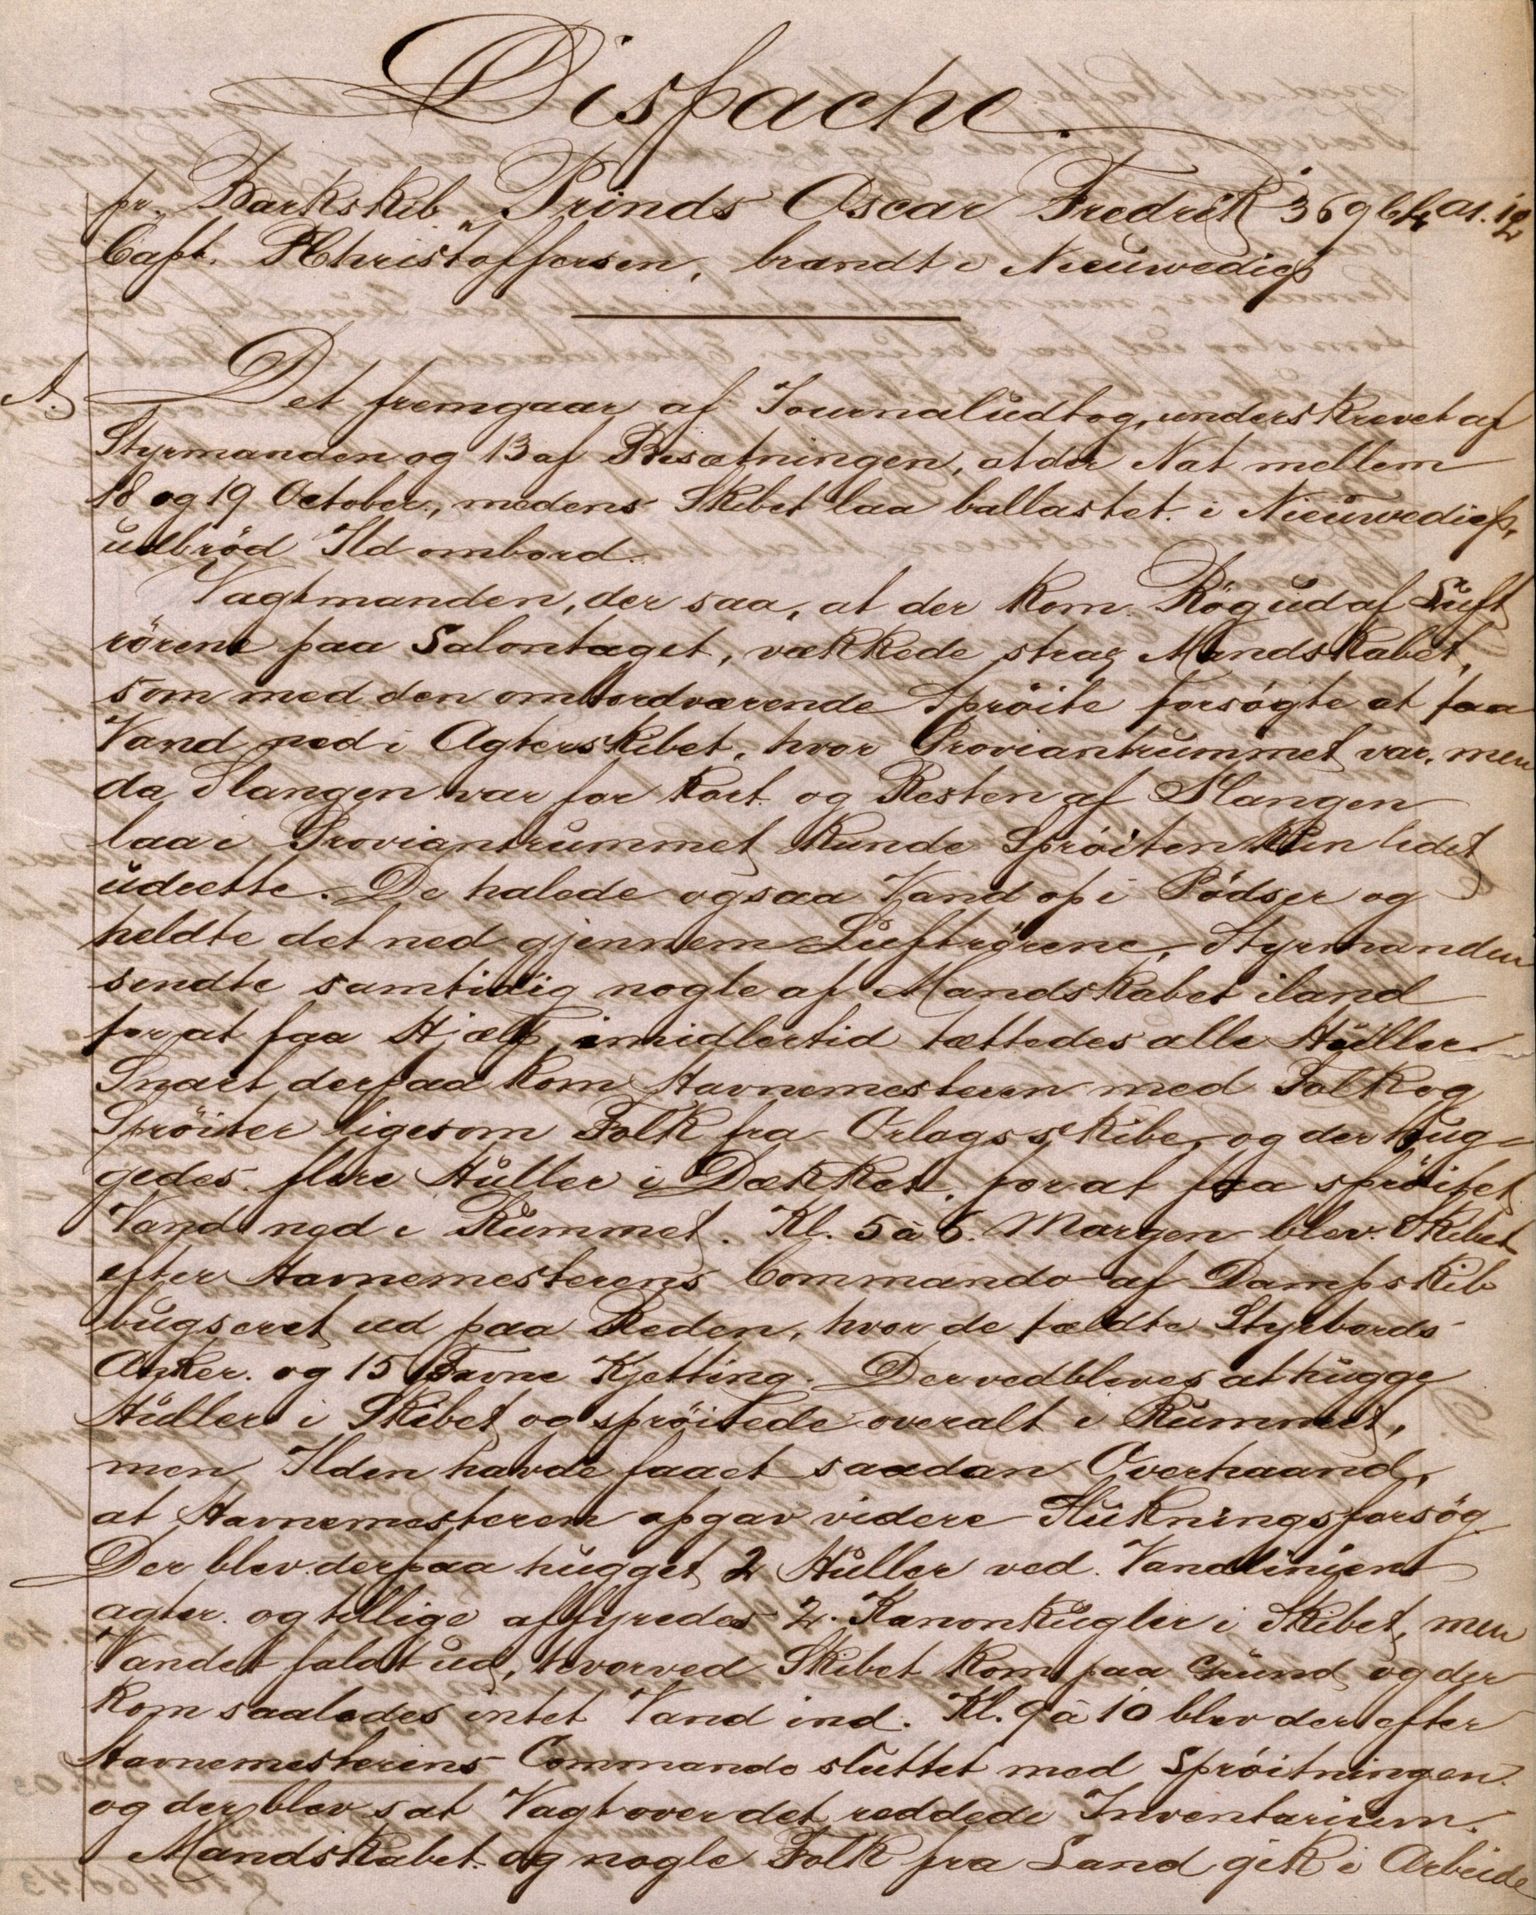 Dispache.
pr. Barkskib "Prinds Oscar Fredrik"
Capt. P Christoffersen, brændt i Nieuwediep
A. Det fremgaar af Journaludtog, underskrevet af
Styrmanden og 13 af Besætningen, at der Nat mellem
18 og 19 October, medens Skibet laa ballastet i Nieuwediep,
udbrød Ild ombord.
Vagtmanden, der saa, at der kom Røg ud af Luft
rørene paa Salontaget, vækkede strax Mandskabet,
som med den ombordværende Sprøite forsøgte at faa
Vand ned i Agterskibet, hvor Proviantrummet var, men
da Slangen var for kort og Resten af Slangen
laa i Proviantrummet kunde Sprøiten kun lidet
udrette. De halede ogsaa Vand op i Pødser og
heldte det ned gjennem Luftrørene, Styrmanden
sendte samtidig nogle af Mandskabet iland
for at faa Hjælp, imidlertid tættedes alle Huller.
Snart derpaa kom Havnemesteren med Folk og
Sprøiter ligesom Folk fra Orlogsskibe, og der hug-
gedes flere Huller i Dækket, for at faa sprøitet
Vand ned i Rummet. Kl. 5 à 6 Morgen blev Skibet
efter Havnemesterens Commando af Dampskib
bugseret ud paa Reden, hvor de fældte Styrbords
Anker og 15 Favne Kjetting. Der vedbleves at hugge
Huller i Skibet og sprøitede overalt i Rummet,
men Ilden havde faaet saadan Overhaand,
at Havnemesteren opgav videre Slukningsforsøg.
Der blev derpaa hugget 2 Huller ved Vandlinien
agter og tillige affyredes 2 Kanonkugler i Skibet, men
Vandet faldt ud, hvorved Skibet kom paa Grund og der
kom saaledes intet Vand ind. Kl. 9 à 10 blev der efter
Havnemesterens Commando sluttet med Sprøitningen
og der blev sat Vagt over det reddede Inventarium.
Mandskabet og nogle Folk fra Land gik i Arbeide